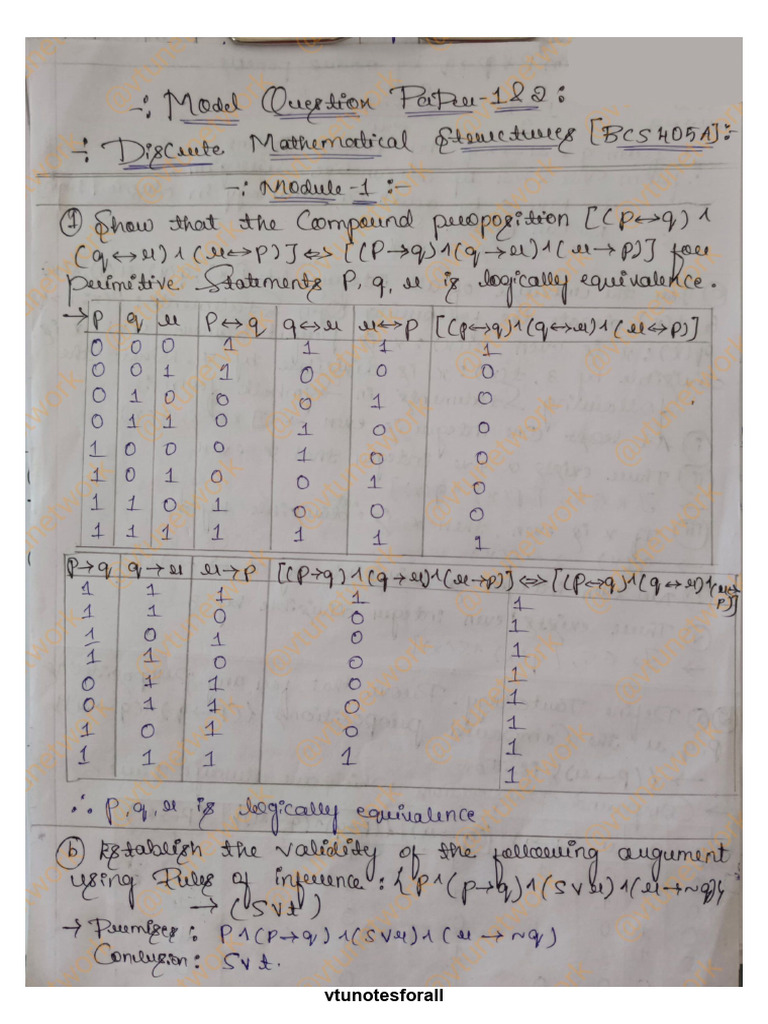 -: Model Question Paper-1&2:
-: Discrete Mathematical Structures [BCS405A]:-
-: Module-1 :-
① Show that the Compound proposition [(p↔q)∧
(q↔r)∧(r↔p)] ⇔ [(p→q)∧(q→r)∧(r→p)] for
primitive Statements p, q, r is logically equivalence.
→ p q r p↔q q↔r r↔p [(p↔q)∧(q↔r)∧(r↔p)]
0 0 0 1 1 1 1
0 0 1 1 0 0 0
0 1 0 0 0 1 0
0 1 1 0 1 0 0
1 0 0 0 1 0 0
1 0 1 0 0 1 0
1 1 0 1 0 0 0
1 1 1 1 1 1 1
p→q q→r r→p [(p→q)∧(q→r)∧(r→p)] ⇔ [(p↔q)∧(q↔r)∧(r↔
p)]
1 1 1 1 1
1 1 0 0 1
1 0 1 0 1
1 1 0 0 1
0 1 1 0 1
0 1 1 0 1
1 0 1 0 1
1 1 1 1 1
∴ p, q, r is logically equivalence
ⓑ Establish the validity of the following argument
using Rules of inference: {p∧(p→q)∧(s∨r)∧(r→~q)}
→ (s∨t)
→ Premises: p∧(p→q)∧(s∨r)∧(r→~q)
Conclusion: s∨t.
vtunotesforall